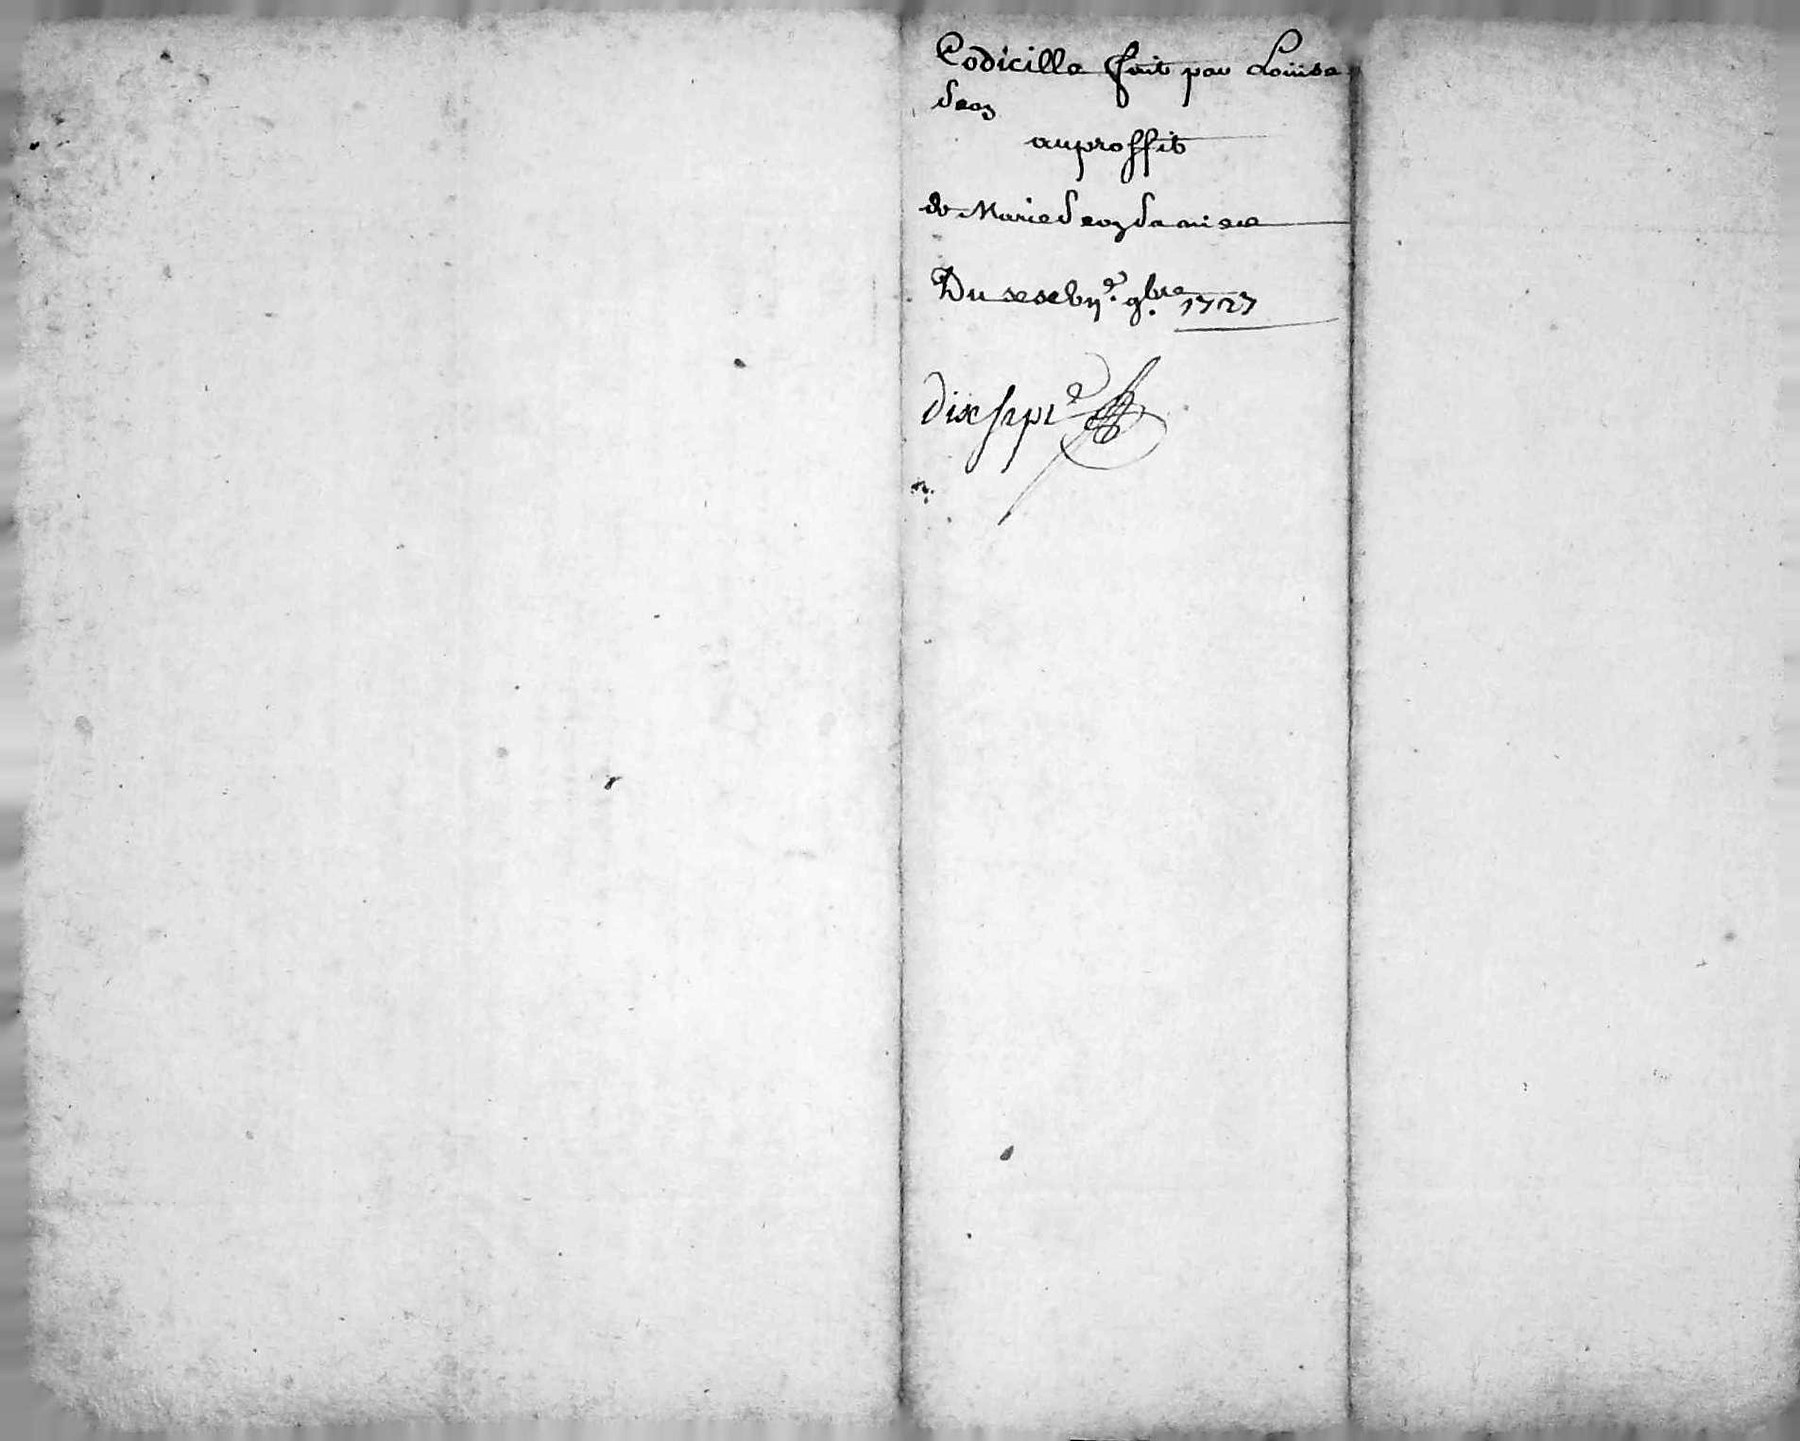 Codicille fait par Louise
Deon
au proffit
de Marie Deon sa niece
Du xxvij.e 9bre 1727
dix sept.e